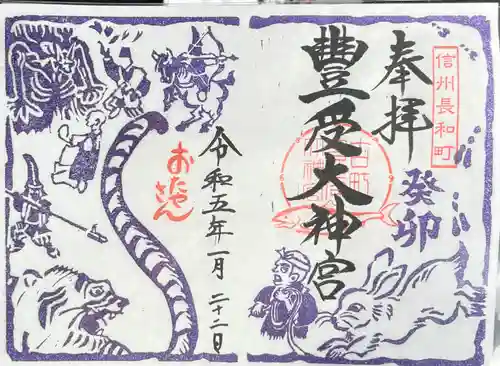 信州長和町
奉拝
癸卯
豊受大神宮
令和五年一月二十二日
おたやさん